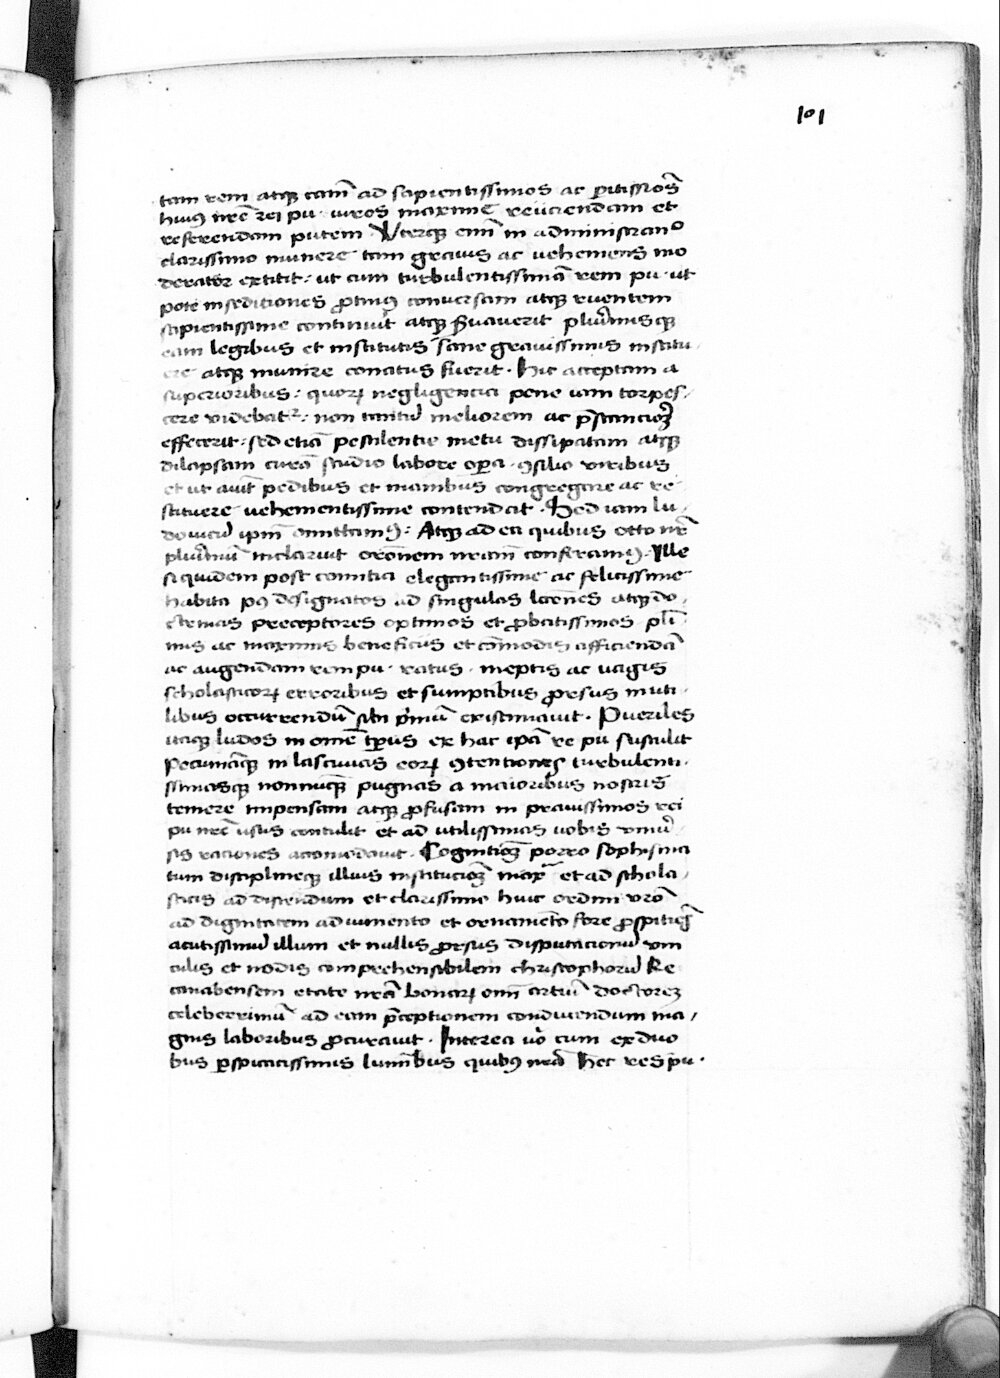 101
tam rem atqꝫ cām ad sapientissimos ac ꝑitissiōs
huiꝰ nrē rei pu. viros maxime reiiciendam et
referendam putem. Vterqꝫ enī in administranᵒ
clarissimo munere tam grauis ac vehemens mo
derator extitit. ut cum turbulentissimā rem pu. ut
pote in seditiones ꝓtinꝰ conuersam atqꝫ ruentem
sapientissime continuit atqꝫ ẜuauerit plurimisqꝫ
eam legibus et institutis sane grauissimis institu
ere atqꝫ munire conatus fuerit. Hic acceptam a
superioribus: quoꝝ negligencia pene iam torpes
cere videbatᵉ: non tantū meliorem ac p̄stancioꝫ
effecerit: sed etiā pestilentie metu dissipatam atqꝫ
dilapsam curā studio labore oꝑa ꝯsilio viribus
et ut aiūt pedibus et manibus congregare ac re
stituere vehementissime contendat. Sed iam lu
douicū ip̄m omittamꝰ: Atqꝫ ad ea quibus otto nr̄
plurimū inclaruit orōnem nrām conferamꝰ. Ille
siquidem post comitia elegantissime ac felicissime
habita pꝰ designatos ad singulas lcōnes atqꝫ do
ctrinas preceptores optimos et ꝓbatissimos pli
mis ac maximis beneficiis et cōmodis afficiendā
ac augendam rem pu. ratus. ineptis ac vagis
scholasticoꝝ erroribus et sumptibus ꝓrsus inuti
libus occurrendū sibi p̄mū existimauit. Pueriles
itaqꝫ ludos in omē tp̄us ex hac ip̄a re pu sustulit
Pecuniāqꝫ in lasciuas eoꝝ ꝯtentiones turbulenti
ssimasqꝫ nonnūqꝫ pugnas a maioribus nostris
temere impensam atqꝫ ꝓfusam in prauissimos rei
pu nrē usus contulit et ad utilissimas vobis vniuᵉ
sis raciones accomodauit. Cognitioꝫ porro sophisma
tum disciplineqꝫ illius instituciōꝫ maxᵃ et ad schola
sticis ad discendum et clarissimo huic ordini vrō
ad dignitatem adiumento et ornamēto fore ꝓspiciēs
acutissimū illum et nullis ꝓrsus disputacionū vin
culis et nodis comprehensibilem christophorū Re
canabensem etate nrā bonaꝝ omī artiū doctoreꝫ
celeberrimū ad eam p̄ceptionem conducendum ma
gnis laboribus ꝓcurauit. Interea vᵒ cum ex duo
bus ꝑspicacissimis luminibus quibꝰ nrā hec res pu.